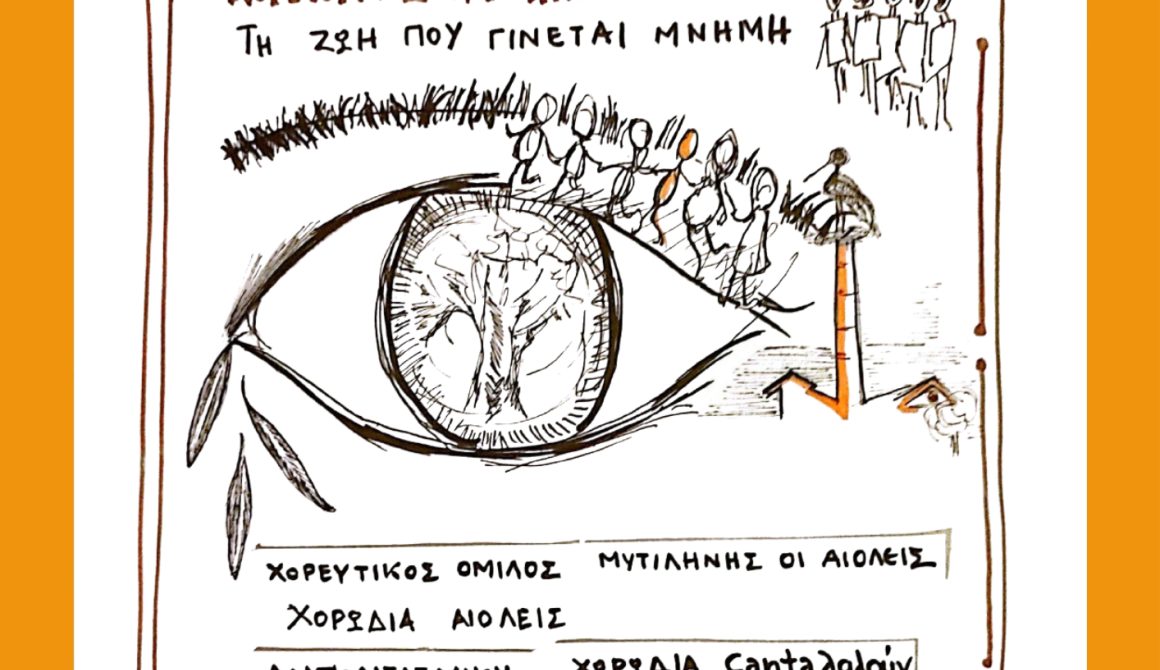 ΤΗ ΖΩΗ ΠΟΥ ΓΙΝΕΤΑΙ ΜΝΗΜΗ
ΧΟΡΕΥΤΙΚΟΣ ΟΜΙΛΟΣ ΜΥΤΙΛΗΝΗΣ ΟΙ ΑΙΟΛΕΙΣ
ΧΟΡΩΔΙΑ ΑΙΟΛΕΙΣ
ΧΟΡΩΔΙΑ Cantaλαλούν